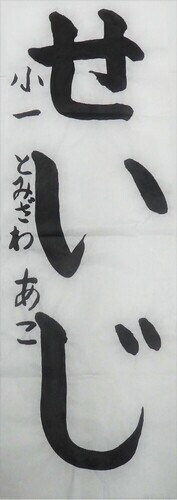 せいじ
小一 とみざわ あこ